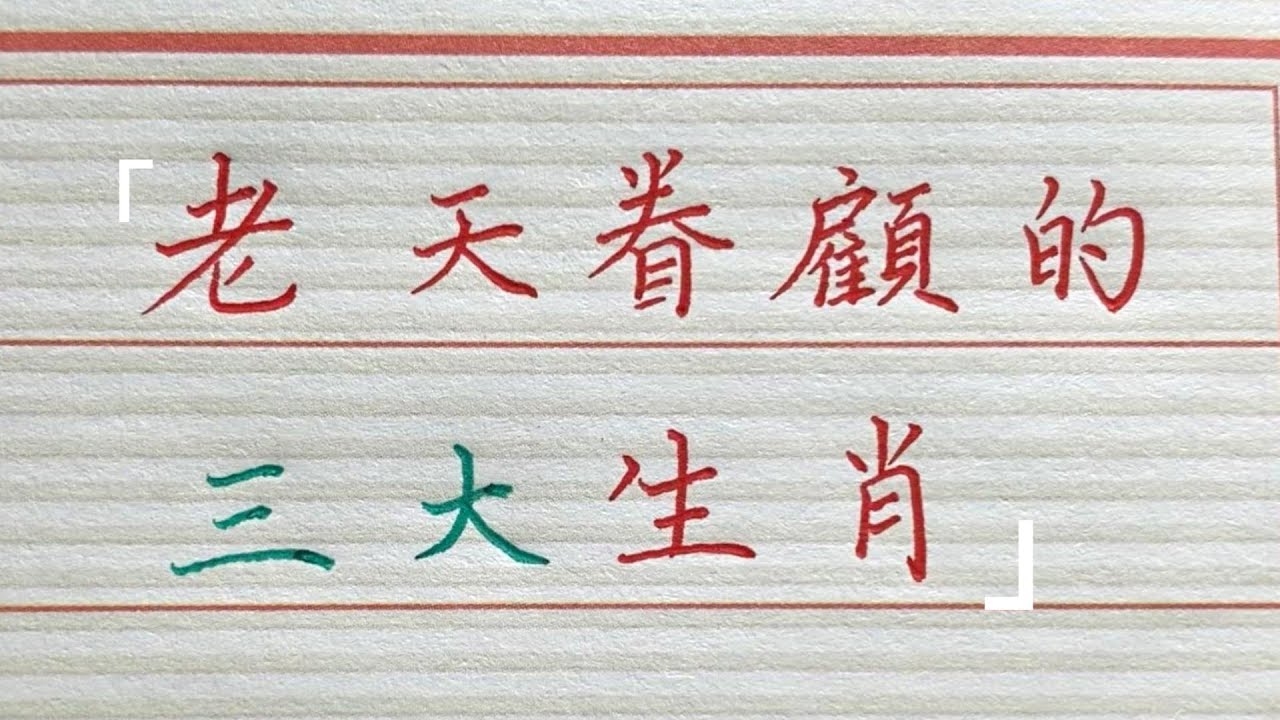 「老天眷顧的
三大生肖」